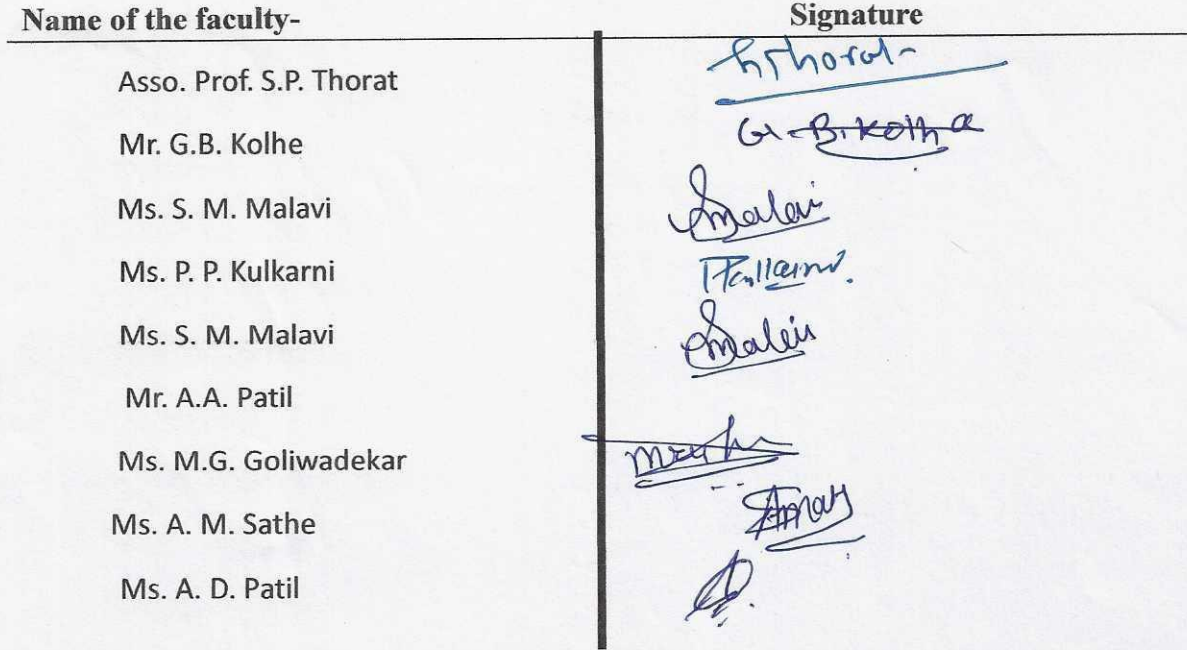 Name of the faculty- Signature
Asso. Prof. S.P. Thorat SThorat
Mr. G.B. Kolhe G.B.Kolhe
Ms. S. M. Malavi Smalavi
Ms. P. P. Kulkarni
Ms. S. M. Malavi Smalavi
Mr. A.A. Patil
Ms. M.G. Goliwadekar
Ms. A. M. Sathe
Ms. A. D. Patil